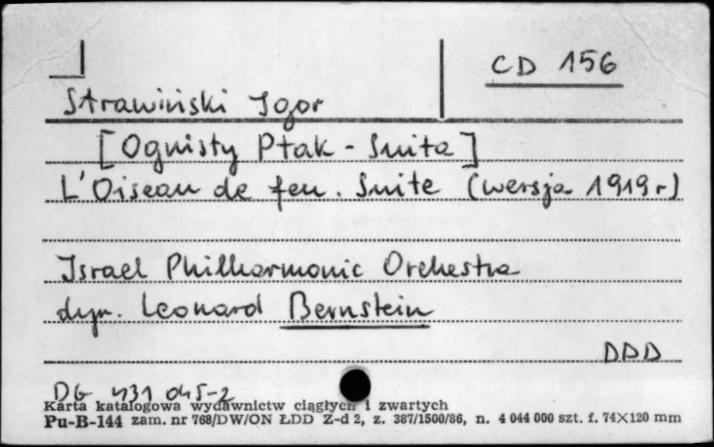 CD 156
Strawiński Igor
[Ognisty Ptak - Suita]
L'Oiseau de feu. Suite (wersja 1919 r)
Israel Philharmonic Orchestra
dyr. Leonard Bernstein
DDD
DG 431 045-2
Karta katalogowa wydawnictw ciągłych i zwartych
Pu-B-144 zam. nr 768/DW/ON ŁDD Z-d 2, z. 387/1500/86, n. 4 044 000 szt. f. 74X120 mm